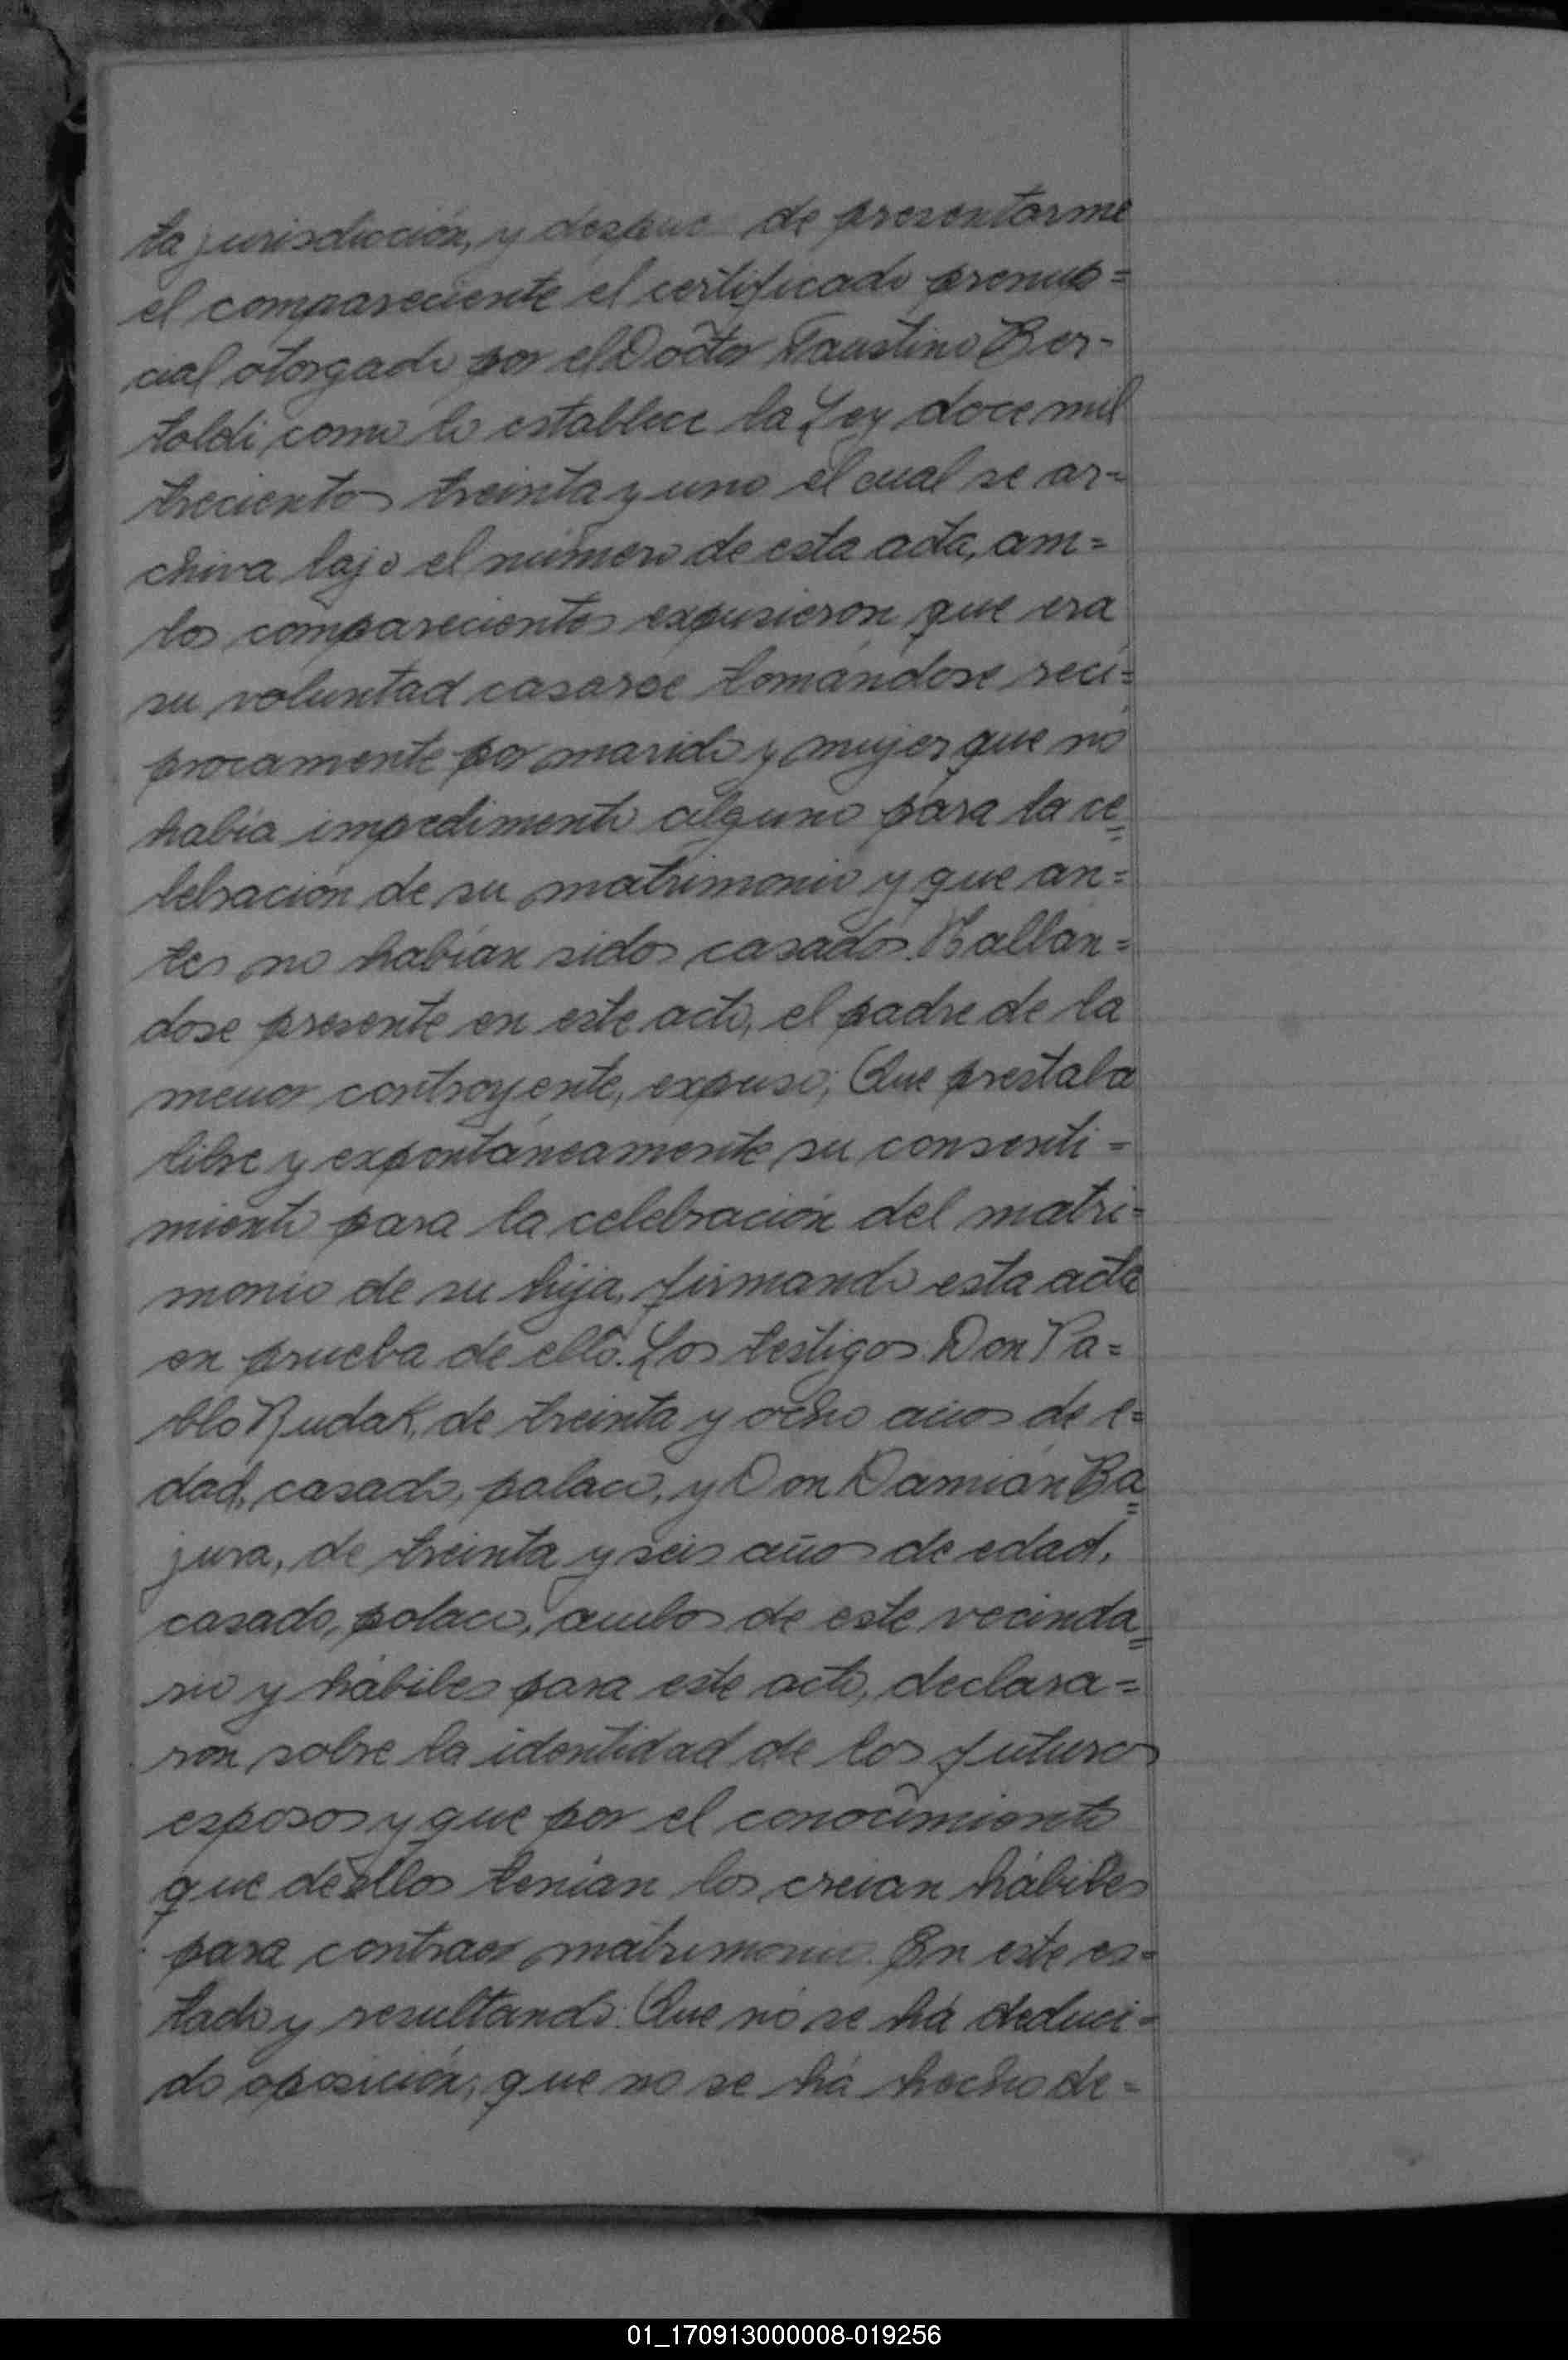 ta jurisdicción, y despue de presentarme
el compareciente el certificado prenup=
cial otorgado por el Doctor Faustino Ber-
toldi, como lo establece la Ley doce mil
trecientos treinta y uno el cual se ar=
chiva bajo el número de esta acta, am=
bos comparecientes expusieron que era
su voluntad casarse tomándose reci=
procamente por marido y mujer que no
había impedimento alguno para la ce=
lebración de su matrimonio y que an=
tes no habían sidos casados. Hallan=
dose presente en este acto, el padre de la
menor contrayente, expuso; Que prestaba
libre y expontáneamente su consenti=
miento para la celebración del matri=
monio de su hija, firmando esta acta
en prueba de ello. Los testigos Don Pa=
blo Rudak, de treinta y ocho años de e=
dad, casado, polaco, y Don Damián Ba=
jura, de treinta y seis años de edad,
casado, polaco, ambos de este vecinda=
rio y hábiles para este acto, declara=
ron sobre la identidad de los futuros
esposos y que por el conocimiento
que de ellos tenían los creían hábiles
para contraer matrimonio. En este es=
tado y resultando: Que no se há deduci=
do oposición, que no se há hecho de=
01_170913000008-019256